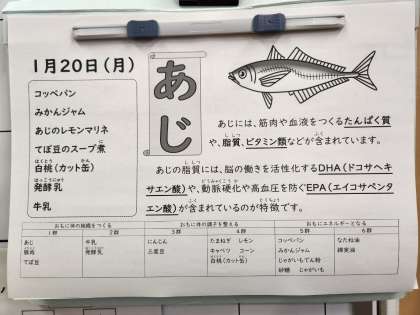 1月20日(月)
コッペパン
みかんジャム
あじのレモンマリネ
てぼ豆のスープ煮
白桃(カット缶)
発酵乳
牛乳
あじ
あじには、筋肉や血液をつくるたんぱく質
や、脂質、ビタミン類などが含まれています。
あじの脂質には、脳の働きを活性化するDHA(ドコサヘキ
サエン酸)や、動脈硬化や高血圧を防ぐEPA(エイコサペンタ
エン酸)が含まれているのが特徴です。
おもに体の組織をつくる
おもに体の調子を整える
おもにエネルギーとなる
1群 2群 3群 4群 5群 6群
あじ 牛乳 にんじん たまねぎ レモン コッペパン なたね油
豚肉 発酵乳 三度豆 キャベツ コーン みかんジャム 綿実油
てぼ豆 白桃(カット缶) じゃがいもでん粉
砂糖 じゃがいも